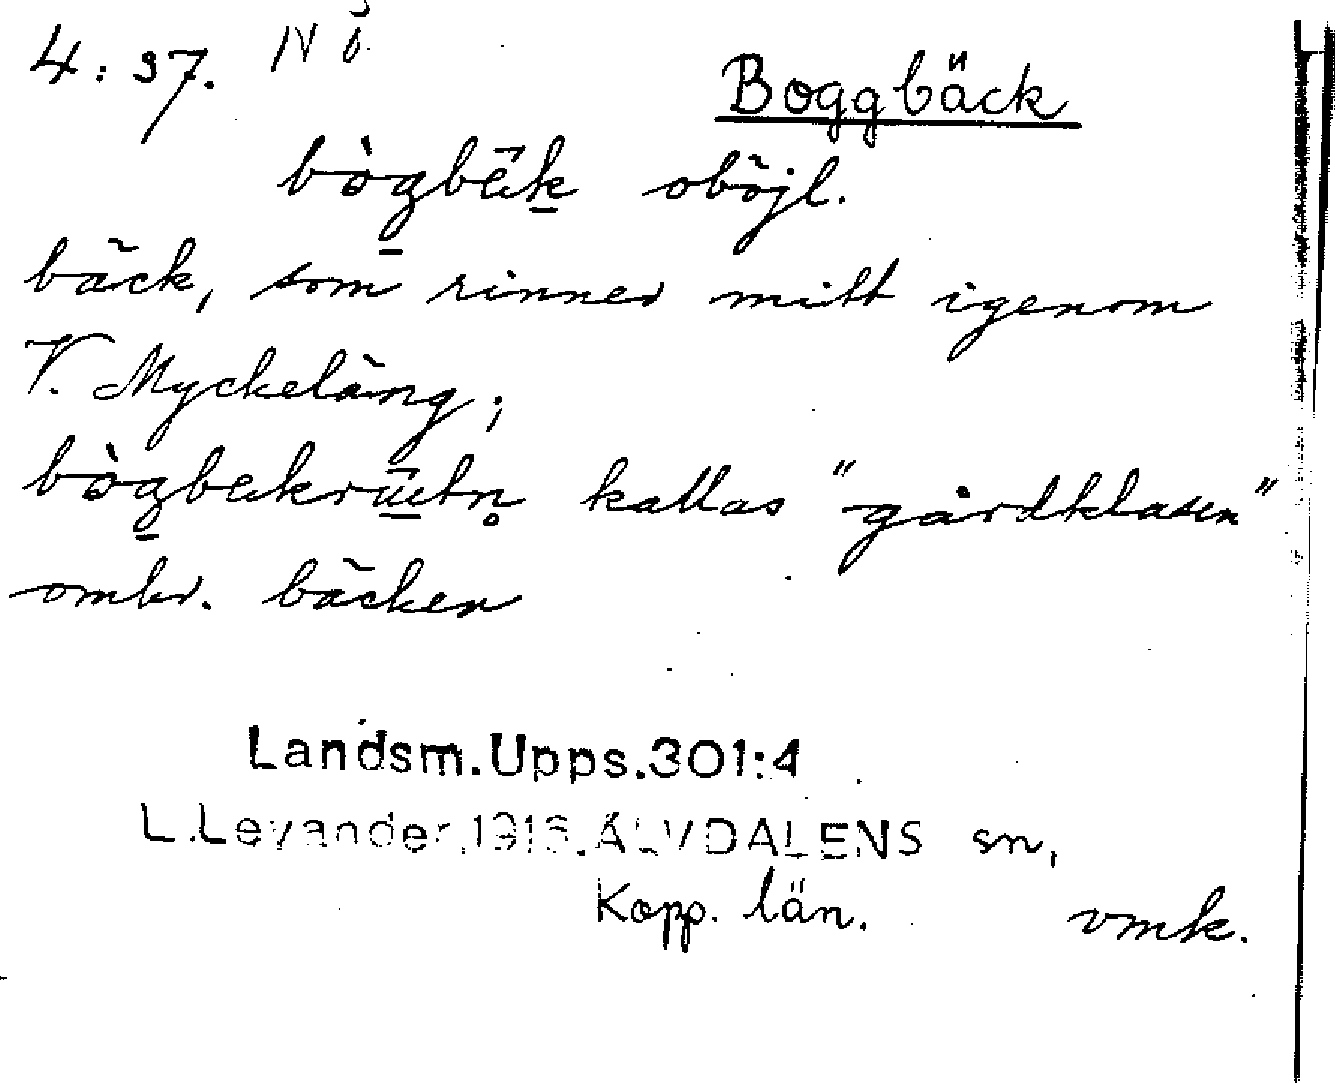 4:37. NÖ
Boggbäck
bògbäk oböjl.
bäck, som rinner mitt igenom
V. Myckeläng;
bògbækrūtn̥ kallas "gårdklasen"
omkr. bäcken
Landsm.Upps.301:4
L.Levander.1916.ÄLVDALENS sn,
Kopp. län. vmk.